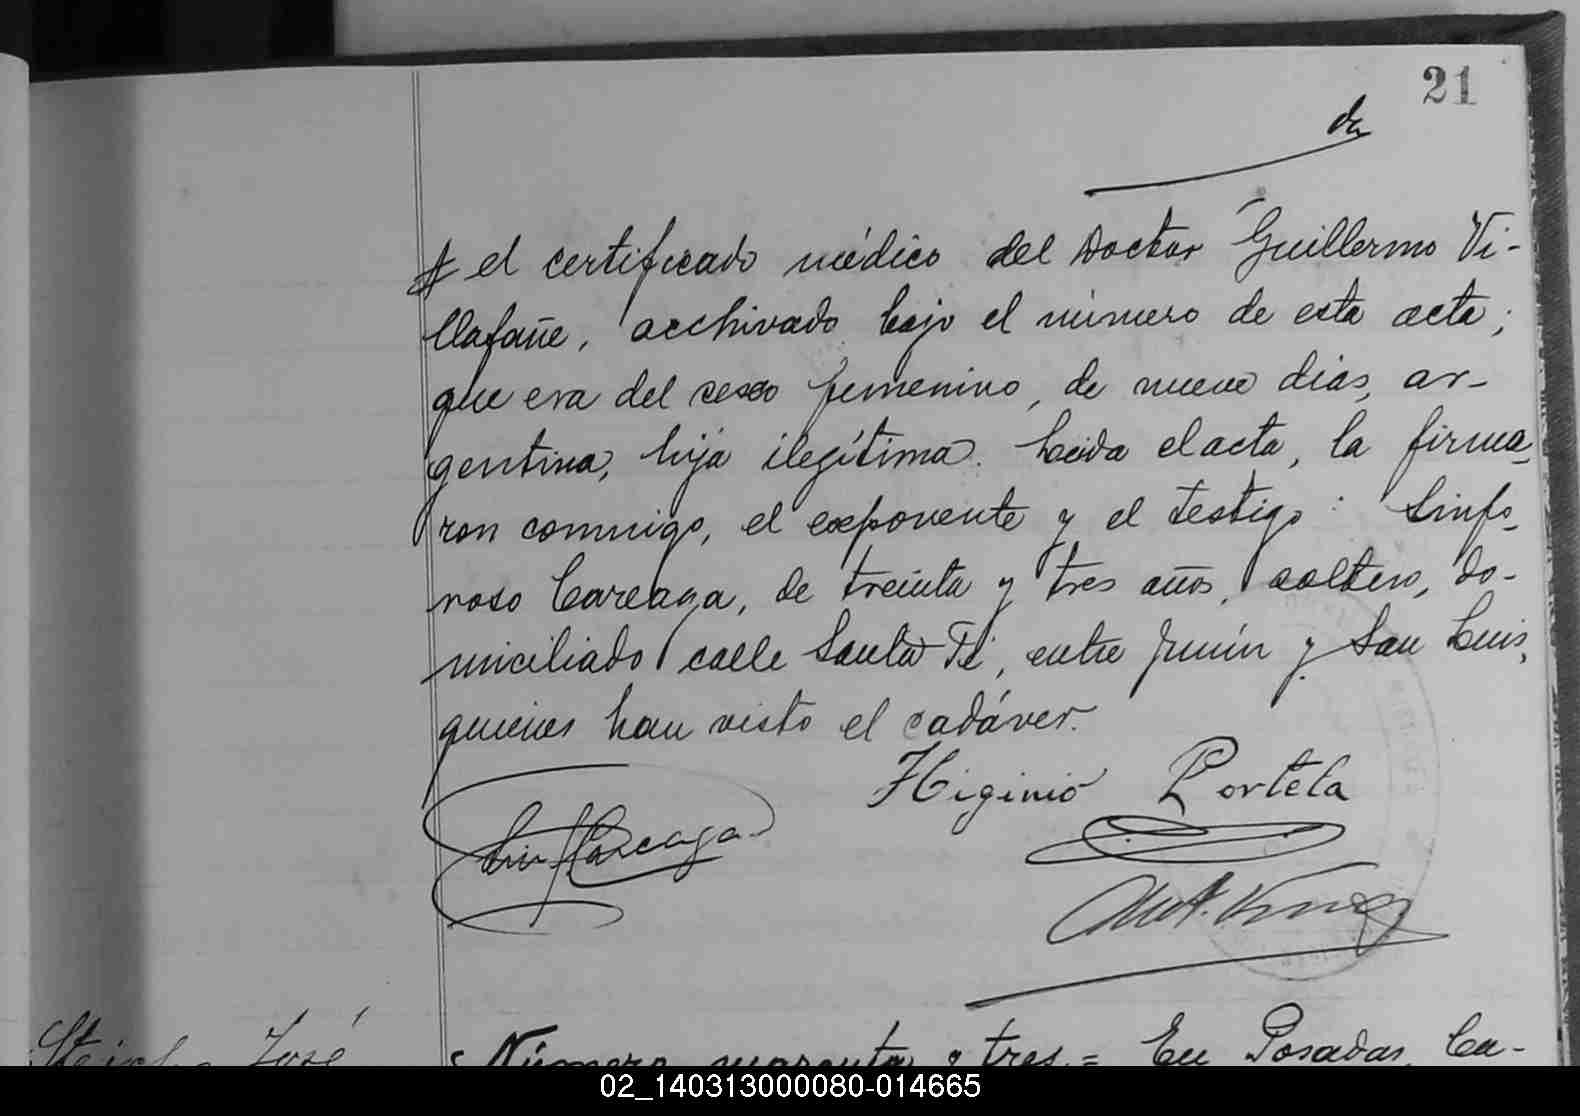 21
da
el certificado médico del Doctor Guillermo Vi-
llafañe, archivado bajo el número de esta acta;
que era del sexo femenino, de nueve dias, ar-
gentina, hija ilegítima. Leida el acta, la firma-
ron conmigo, el exponente y el testigo: Sinfo-
roso Careaga, de treinta y tres años, soltero, do-
miciliado calle Santa Fé, entre Junín y San Luis,
quienes han visto el cadáver.
Higinio Portela
Careaga
José
Número cuarenta y tres = En Posadas, Ca-
02_140313000080-014665